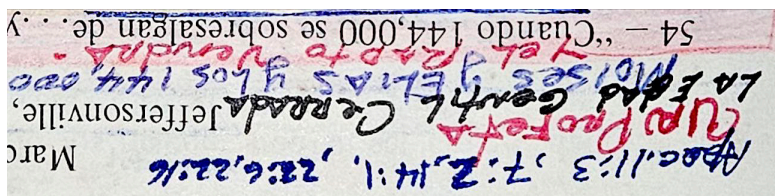 Apoc. 11:3, 7:2, 14:1, 22:6, 22:16 Marc
UN PROFETA Jeffersonville,
LA EDAD GENTIL CERRADA
MOISES Y ELIAS Y LOS 144,000
Y EL RAPTO VENDRA
54 – “Cuando 144,000 se sobresalgan de . . . Y